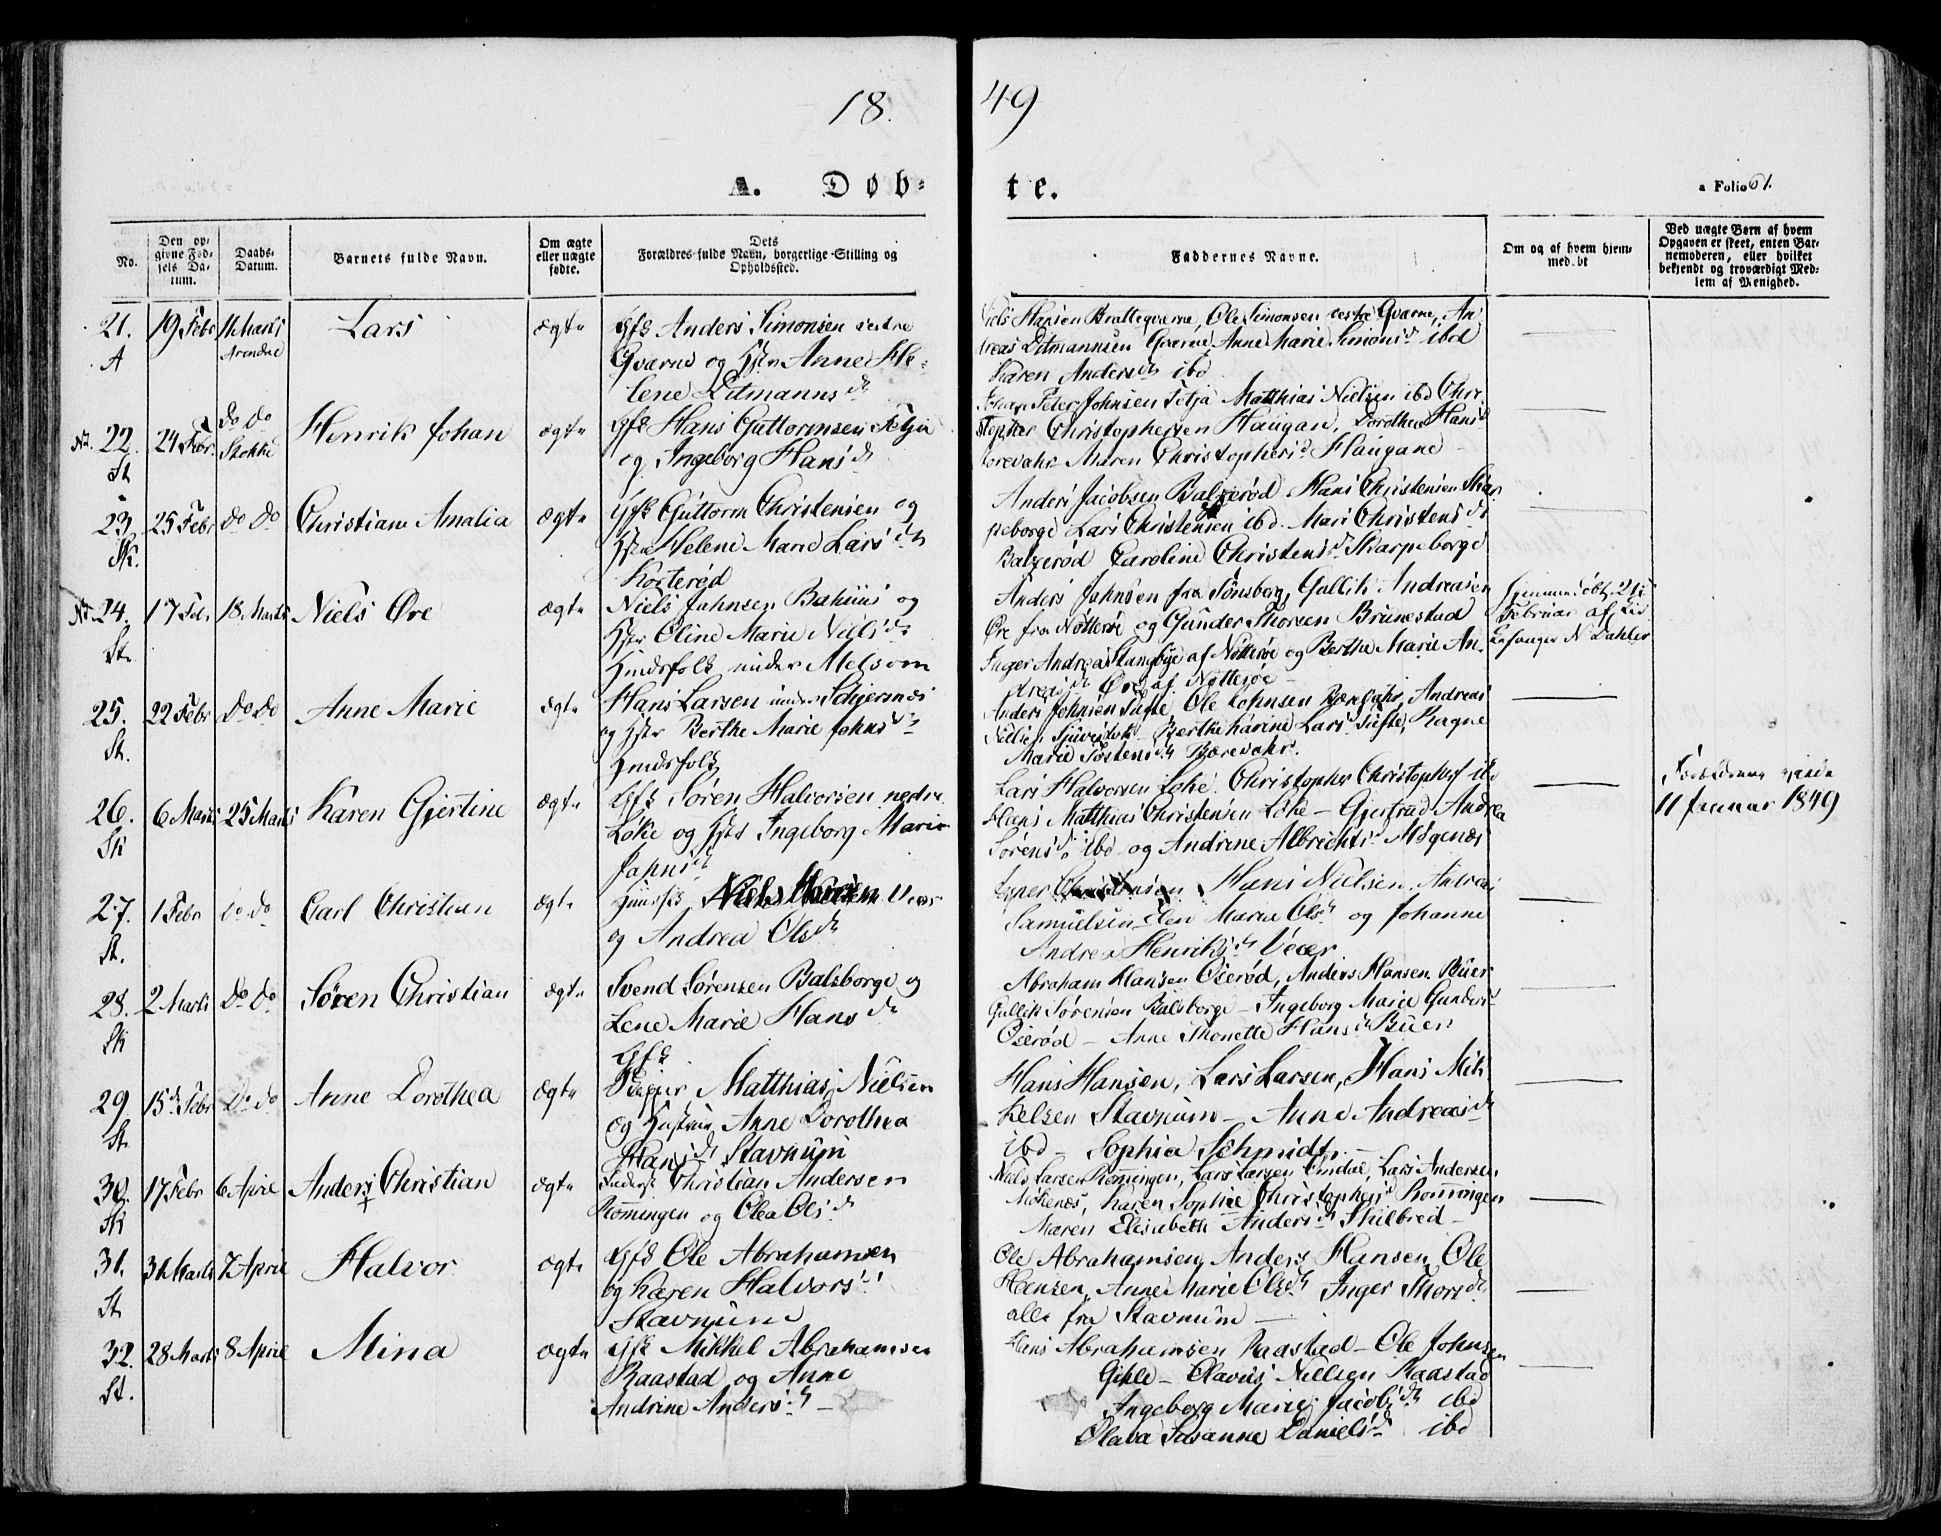 18 49
A. Døb= te.
a Folio 61.
No.
Den op=
givne Fød=
sels Da=
tum.
Daabs=
Datum.
Barnets fulde Navn.
Om ægte
eller uægte
fødte.
Dets
Forældres fulde Navn, borgerlige Stilling og
Opholdssted.
Faddernes Navne.
Om og af hvem hjem=
medøbt
Ved uægte Børn af hvem
Opgaven er skeet, enten Bar=
nemoderen, eller hvilket
bekjendt og troværdigt Med=
lem af Menighed.
21.
A
19 Febr
11 Marts
Arendal
Lars
ægte
Gfs Anders Simonsen vestre
Gvarne og Hstr Anne He=
lene Ditmannsdr
Niels Hansen Brattegvarne, Ole Simonsen vestre Gvarne, An
dreas Ditmannsen Gvarne, Anne Marie Simonsd ibd
Karen Andersdr ibd
22.
St
24 Febr.
do do
Stokke
Henrik Johan
ægte
Gfs Hans Guttormsen Tetja
og Ingeborg Hansdr
Johan Peter Johnsen Tetja Matthias Nielsen ibd Chri
stopher Christophersen Haugan, Dorothea Hansd
Borevahr Maren Christophersd Haugane
23.
Sk.
25 Febr
do do
Christiane Amalia
ægte
Gfs Guttorm Christensen og
Hstr Helene Marie Larsdr
Korterød
Anders Jacobsen Balzerød Hans Christensen Skar
peborge Lars Christensen ibd. Mari Christensdr
Balzerød Caroline Christensdr Skarpeborge
24.
St.
17 Feb.
18 Marts
Niels Øre
ægte
Niels Johnsen Bahuus og
Hstr Oline Marie Nielsdr
Huusfolk under Melsom
Anders Johnsen fra Tønsberg, Gullik Andreasen
Øre fra Nøtterøe og Gunder Thorsen Brunestad
Inger Andrea Stangbye af Nøtterøe og Berthe Marie An=
dreasdr Øre af Nøtterøe
Hjemmedøbt 21de
Februar af
N Dahler
25.
St.
22 Febr
do do
Anne Marie
ægte
Hans Larsen under Schjersnæs
og Hstr Berthe Marie Johnsdr
Huusfolk
Anders Johnsen Tufte, Ole Johnsen Borevahr, Andreas
Nielsen Sjuestok Berthe Karine Larsd Tufte, Ragne
Marie Tostensdr Borevahr.
26.
Sk
6 Marts
25 Marts
Karen Gjertine
ægte
Gfs Søren Halvorsen nedre
Løke og Hstr Ingeborg Marie
Johnsdr
Lars Halvorsen Løke. Christopher Christophers ibd
Hans Matthias Christensen Løke – Gjertrud Andrea
Sørensd ibd og Andrine Albrechtsd Magenæs
11 Januar 1849
27.
St.
1 Febr
do do
Carl Christian
ægte
Huusfs Niels Hansen Veær
og Andrea Olsdr
Hans Nielsen. Andreas
Samuelsen Elen Maria Olsdr og Johanne
Andrea Henriksdr Veær
28.
Sk
2 Marts
do do
Søren Christian
ægte
Svend Sørensen Balsborge og
Lene Marie Hansdr
Gfs
Abraham Hansen Oserød, Anders Hansen Buer
Gullik Sørensen Balsborge – Ingeborg Marie Gundersd
Oserød – Anne Thonette Hansdr Buer
29
St.
15de Febr
do do
Anne Dorothea
ægte
Matthias Nielsen
og Hustru Anne Dorothea
Hansdr Stavnum
Hans Hansen, Lars Larsen, Hans Mik
kelsen Stavnum – Anne Andreasdr
ibd – Sophia Schmidt. –
30.
Sk
17 Febr
6 April
Anders Christian
ægte
Christian Andersen
Rømmingen og Olea Olsdr
Niels Larsen Rømmingen, Lars Larsen Omdal, Lars Andersen
Mokenæs, Karen Sophie Christophersd Rømmingen
Maren Elisabeth Andersdr Skilbred –
31.
St
31 Marts
7 April
Halvor
ægte
Gfs Ole Abrahamsen
og Karen Halvorsd
Stavnum
Ole Abrahamsen, Anders Hansen, Ole
Hansen, Anne Marie Olsdr Inger Thorsdr
alle fra Stavnum –
32.
St.
28 Marts
8 April
Mina
ægte
Gfs Mikkel Abrahamsen
Raastad og Anne
Andrine Andersdr –
Hans Abrahamsen Raastad – Ole Johnsen
Gihle – Olavus Nielsen Raastad
Ingeborg Marie Jacobsdr ibd
Olava Susanne Danielsdr ibd